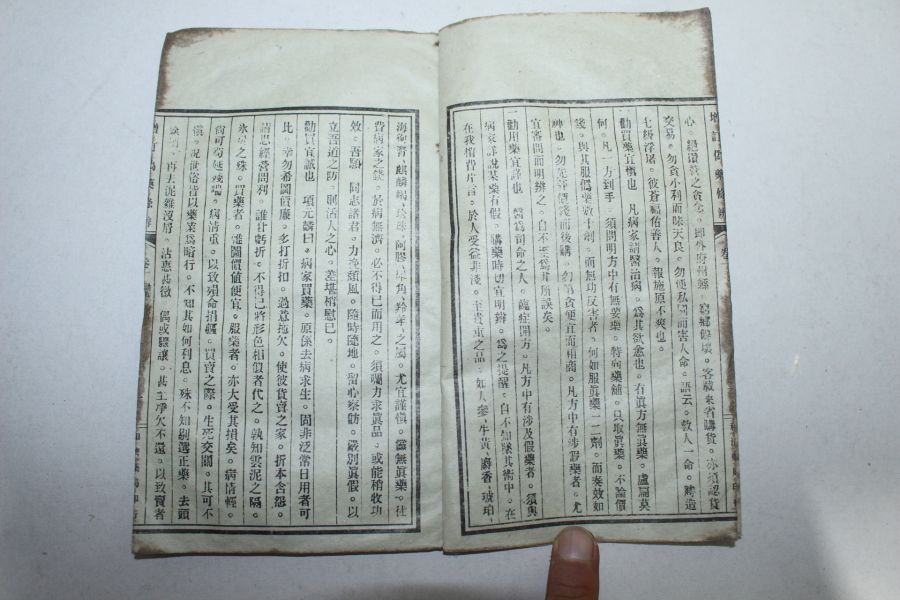 增訂偽藥條辨
心。絕壟斷之貪念。即外府州縣。窮鄉僻壤。客販來省購貨。亦須認貨
交易。勿貪小利而昧天良。勿便私圖而害人命。語云。救人一命。勝造
七級浮屠。彼蒼福佑善人。報施原不爽也。
勸買藥宜愼也 凡病家請醫治病。爲其欲愈也。有眞方無眞藥。盧扁莫
何。凡一方到手。須問明方中有無要藥。特向藥舖。只取眞藥。不論價
錢。與其服僞藥數十劑。而無功反害者。何如服眞藥一二劑。而奏效如
神也。勿先評價錢而後購。勿貪便宜而相商。凡方中有涉僞藥者。尤
宜審問而明辨之。自不至爲其所誤矣。
勸用藥宜謹也 醫爲司命之人。臨症開方。凡方中有涉及假藥者。須與
病家詳說某藥有假。購藥時切宜明辨。爲之提醒。自不知墜其術中。在
在我惜費片言。於人受益非淺。至貴重之品。如人參牛黃。麝香琥珀。
海狗腎。麒麟竭。珍珠。阿膠。犀角。羚羊。之屬。尤宜謹愼。儻無眞藥。徒
費病家之錢。於病無濟。必不得已而用之。須囑力求眞品。或能稍收功
效。吾願 同志諸君。力挽頹風。隨時隨地。留心察訪。嚴別眞假。以
立吾道之防。則活人之心。差堪稍慰已。
勸買宜誠也 項元麟曰。病家買藥。原係去病求生。固非泛常日用者可
比。幸勿希圖價廉。多打折扣。過意拖欠。使彼貨賣之家。折本含怨。
請思經營問利。誰甘虧折。不得已將形色相似者代之。孰知雲泥之隔。
氷炭之殊。買藥者。雖圖價値便宜。服藥者。亦大受其損矣。病情輕。
尚可苟延殘喘。病情重。以致殞命捐軀。買賣之際。生死交關。其可不
愼。況世俗皆以藥業爲暗行。不知其如何利息。殊不知剔選正藥。去頭
再去泥雜沒屑。沾惠甚微。偶或驟讓。甚至拖欠不還。以致賣者